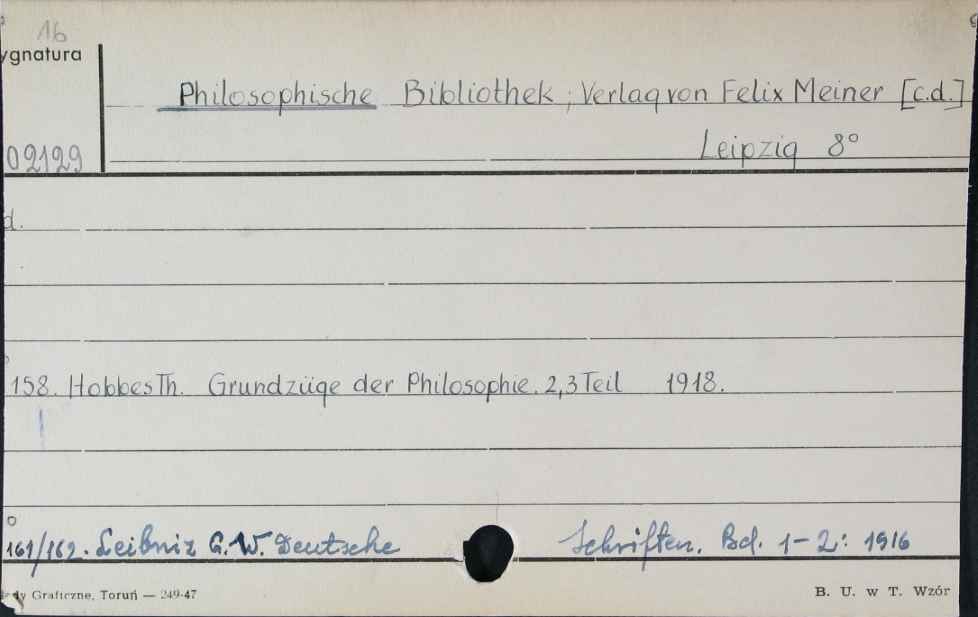 16
ygnatura
Philosophische Bibliothek; Verlag von Felix Meiner [c.d.]
02129
Leipzig 8°
d.
158. Hobbes Th. Grundzüge der Philosophie. 2,3 Teil 1918.
161/162. Leibniz G.W. Deutsche Schriften. Bd. 1-2: 1916
dy Graficzne, Toruń — 249-47
B. U. w T. Wzór